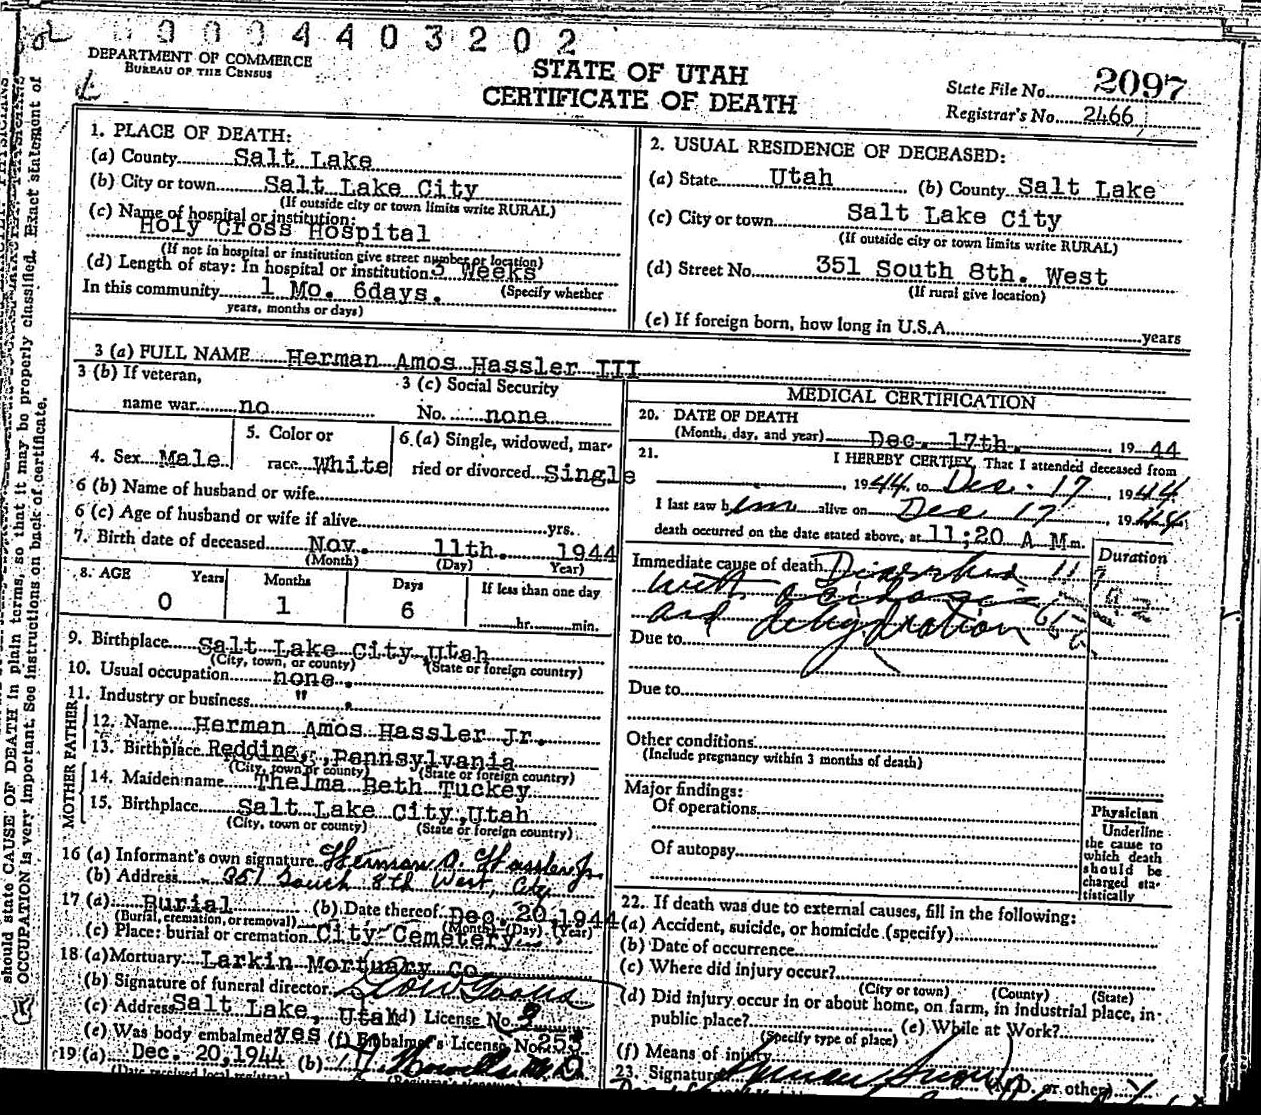 0004403202
DEPARTMENT OF COMMERCE
BUREAU OF THE CENSUS
STATE OF UTAH
CERTIFICATE OF DEATH
State File No. 2097
Registrar's No. 2466
should state CAUSE OF DEATH in plain terms, so that it may be properly classified. Exact statement of
OCCUPATION is very important. See instructions on back of certificate.
1. PLACE OF DEATH:
(a) County Salt Lake
(b) City or town Salt Lake City
(If outside city or town limits write RURAL)
(c) Name of hospital or institution:
Holy Cross Hospital
(If not in hospital or institution give street number or location)
(d) Length of stay: In hospital or institution 3 Weeks
In this community 1 Mo. 6days. (Specify whether
years, months or days)
2. USUAL RESIDENCE OF DECEASED:
(a) State Utah (b) County Salt Lake
(c) City or town Salt Lake City
(If outside city or town limits write RURAL)
(d) Street No. 351 South 8th. West
(If rural give location)
(e) If foreign born, how long in U.S.A. years
3 (a) FULL NAME Herman Amos Hassler III
3 (b) If veteran,
name war no
3 (c) Social Security
No. none
4. Sex Male
5. Color or
race White
6. (a) Single, widowed, mar-
ried or divorced Single
6 (b) Name of husband or wife
6 (c) Age of husband or wife if alive yrs.
7. Birth date of deceased Nov. 11th. 1944
(Month) (Day) Year)
8. AGE Years Months Days If less than one day
0 1 6 hr. min.
9. Birthplace Salt Lake City Utah
(City, town, or county) (State or foreign country)
10. Usual occupation none.
11. Industry or business " .
FATHER
12. Name Herman Amos Hassler Jr.
13. Birthplace Redding, Pennsylvania
(City, town or county) (State or foreign country)
MOTHER
14. Maiden name Thelma Beth Tuckey
15. Birthplace Salt Lake City, Utah
(City, town or county) (State or foreign country)
16 (a) Informant's own signature Herman A. Hassler Jr.
(b) Address 351 South 8th West, City
17 (a) Burial (b) Date thereof Dec. 20, 1944
(Burial, cremation, or removal) (Month) (Day) (Year)
(c) Place: burial or cremation City Cemetery
18 (a) Mortuary Larkin Mortuary Co
(b) Signature of funeral director
(c) Address Salt Lake, Utah (d) License No. 3
(e) Was body embalmed yes (f) Embalmer's License No. 253
19 (a) Dec. 20, 1944 (b) M.D.
MEDICAL CERTIFICATION
20. DATE OF DEATH
(Month, day, and year) Dec. 17th. 19 44
21. I HEREBY CERTIFY, That I attended deceased from
, 1944 to Dec. 17, 1944
I last saw him alive on Dec 17, 1944
death occurred on the date stated above, at 11;20 A M m.
Duration
Immediate cause of death
with acidosis
and dehydration
Due to
Due to
Other conditions
(Include pregnancy within 3 months of death)
Major findings:
Of operations
Of autopsy
Physician
Underline
the cause to
which death
should be
charged sta-
tistically
22. If death was due to external causes, fill in the following:
(a) Accident, suicide, or homicide (specify)
(b) Date of occurrence
(c) Where did injury occur?
(City or town) (County) (State)
(d) Did injury occur in or about home, on farm, in industrial place, in
public place? (e) While at Work?
(Specify type of place)
(f) Means of injury
23. Signature (M.D. or other)